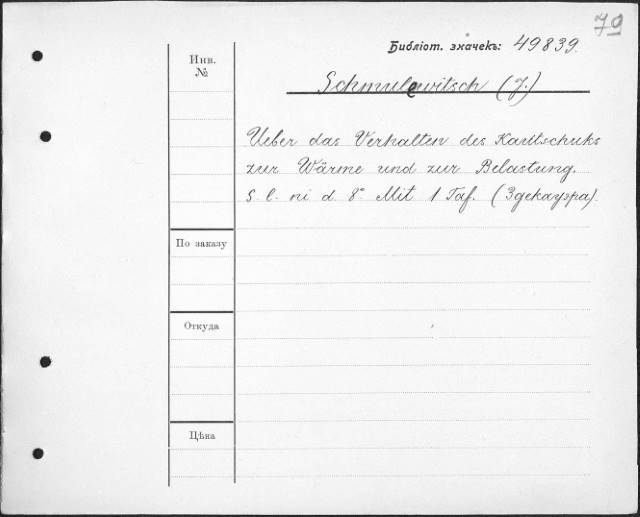 70
Библіот. значекъ: 49839.
Инв.
№
Schmulewitsch (J.)
Ueber das Verhalten des Kautschuks
zur Wärme und zur Belastung.
S. l. ni d. 8° Mit 1 Taf. (3 декаура).
По заказу
Откуда
Цѣна